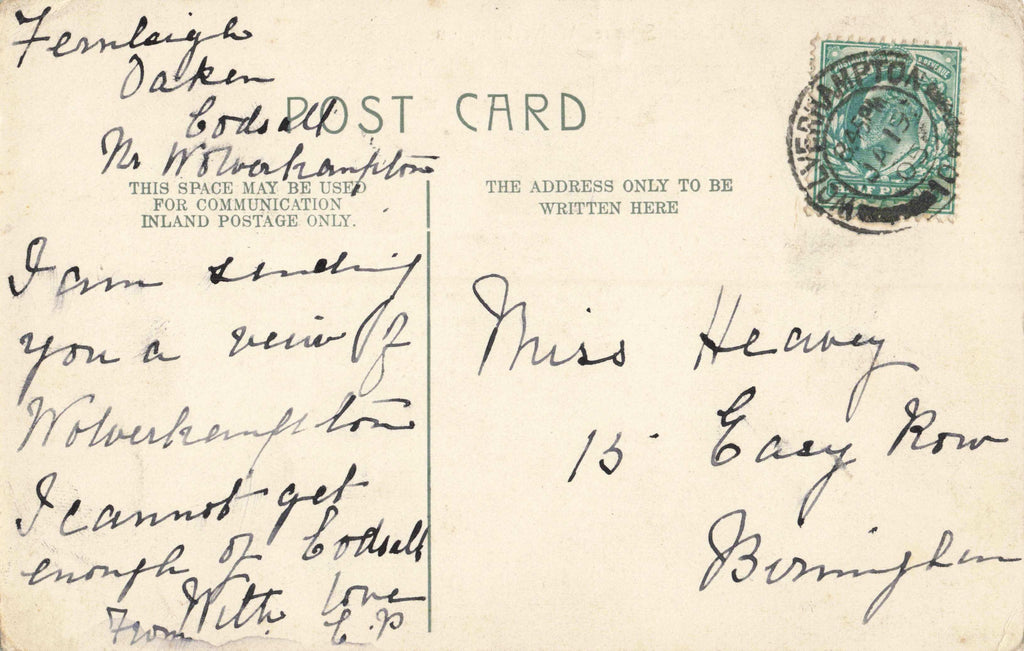 Fernleigh
Oaken
Codsall
Nr Wolverhampton
POST CARD
THIS SPACE MAY BE USED
FOR COMMUNICATION
INLAND POSTAGE ONLY.
I am sending
you a veiw of
Wolverhampton
I cannot get
enough of Codsall
With love
From E.P
THE ADDRESS ONLY TO BE
WRITTEN HERE
WOLVERHAMPTON
Miss Heavey
15 Easy Row
Birmingham